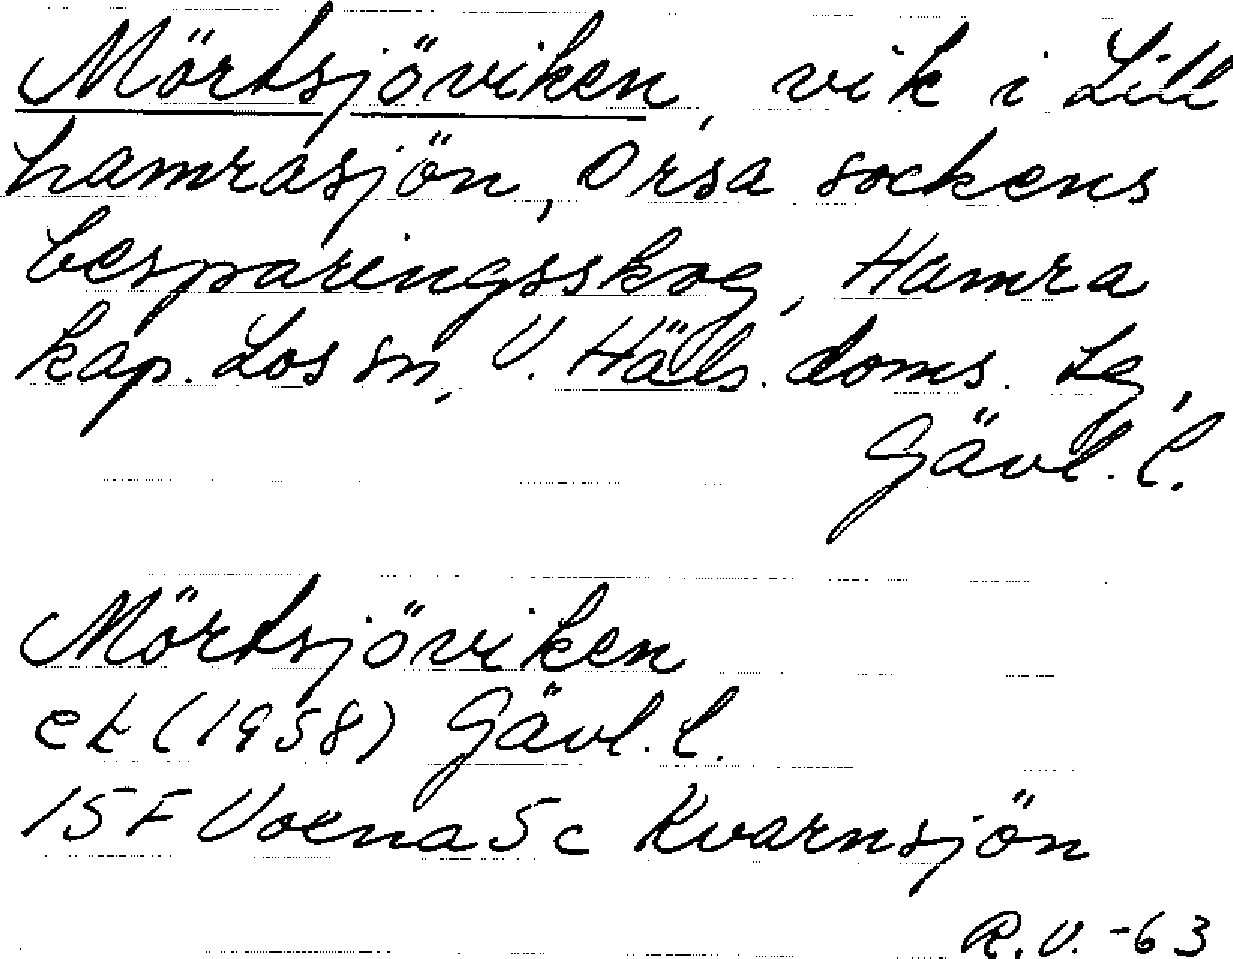 Mörtsjöviken, vik i Lill
hamrasjön, Orsa sockens
besparingsskog, Hamra
kap. Los sn, V. Häls. doms. lg,
Gävl. l.
Mörtsjöviken
ek (1958) Gävl. l.
15 F Voxna 5 c Kvarnsjön
R.V. -63